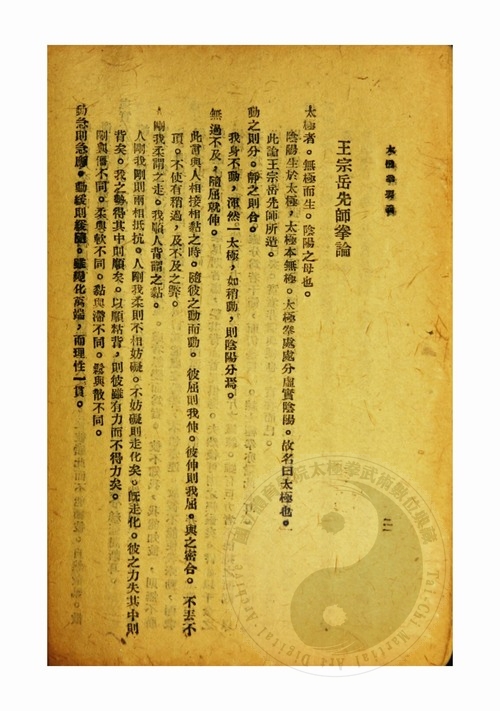 太極拳釋義
王宗岳先師拳論
太極者。無極而生。陰陽之母也。
陰陽生於太極，太極本無極。太極拳處處分虛實陰陽。故名曰太極也。
此論王宗岳先師所造。
動之則分。靜之則合。
我身不動，渾然一太極，如稍動，則陰陽分焉。
無過不及，隨屈就伸。
此言與人相接相黏之時。隨彼之動而動。彼屈則我伸。彼伸則我屈。與之密合。不丟不
頂。不使有稍過，及不及之弊。
人剛我柔謂之走。我順人背謂之黏。
人剛我剛則兩相抵抗。人剛我柔則不相妨礙。不妨礙則走化矣。既走化。彼之力失其中則
背矣。我之勢得其中則順矣。以順粘背，則彼雖有力而不得力矣。
剛與僵不同。柔與軟不同。黏與滯不同。鬆與散不同。
動急則急應。動緩則緩隨。雖變化萬端，而理性一貫。
二
Tai-Chi Martial Art Digital Archive